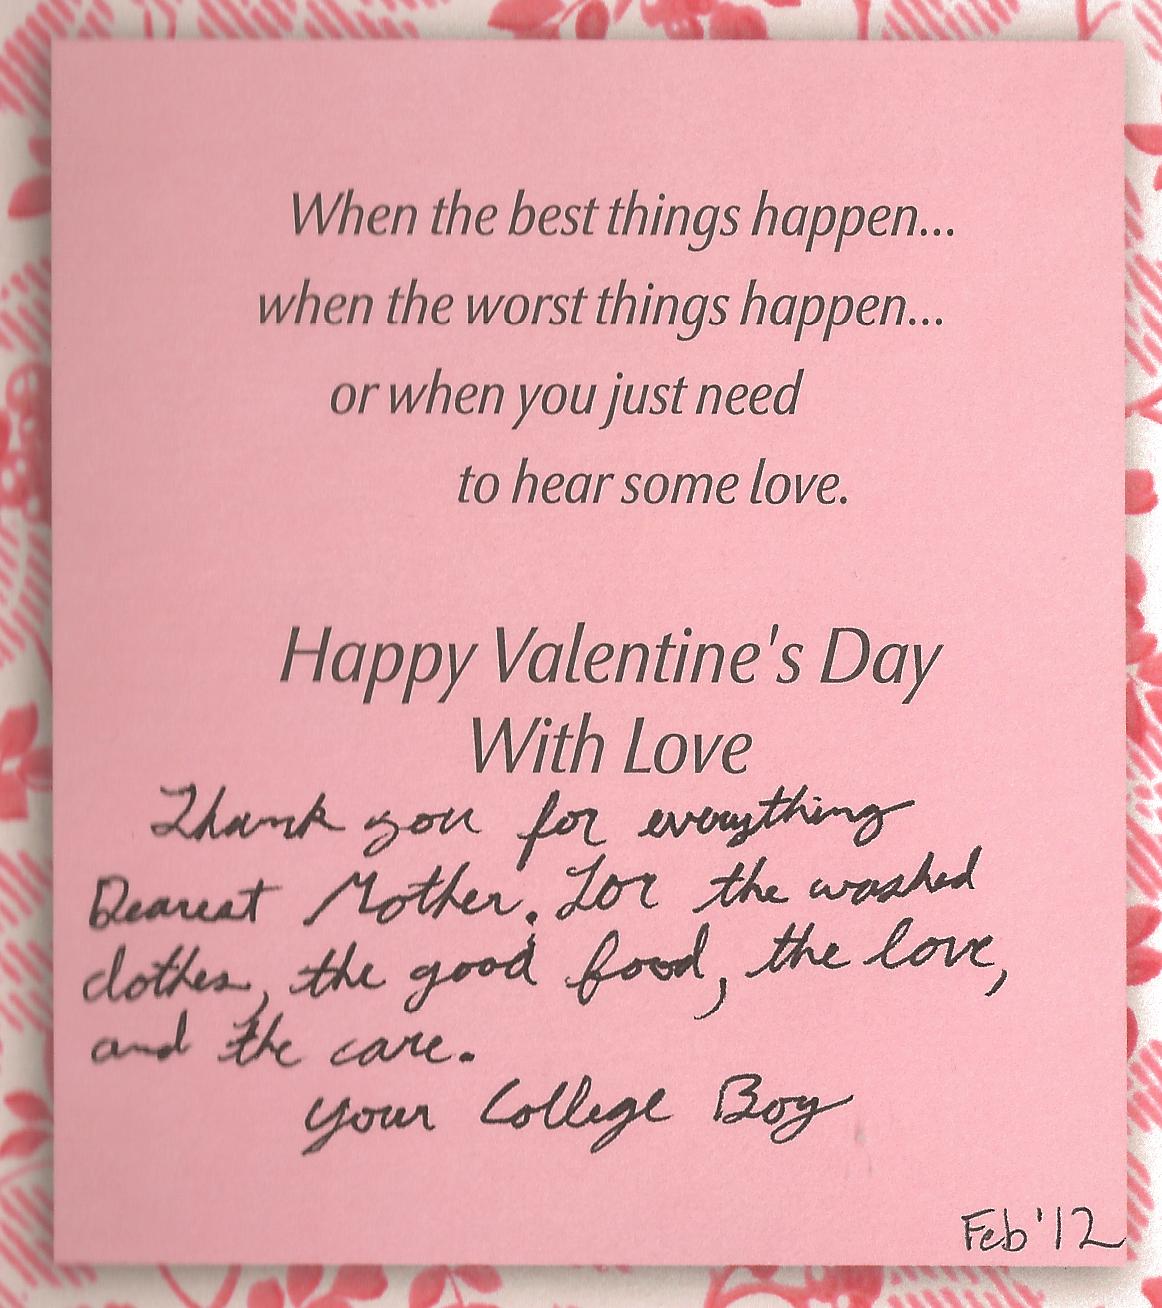 When the best things happen...
when the worst things happen...
or when you just need
to hear some love.
Happy Valentine's Day
With Love
Thank you for everything
Dearest Mother. For the washed
clothes, the good food, the love,
and the care.
Your College Boy
Feb '12